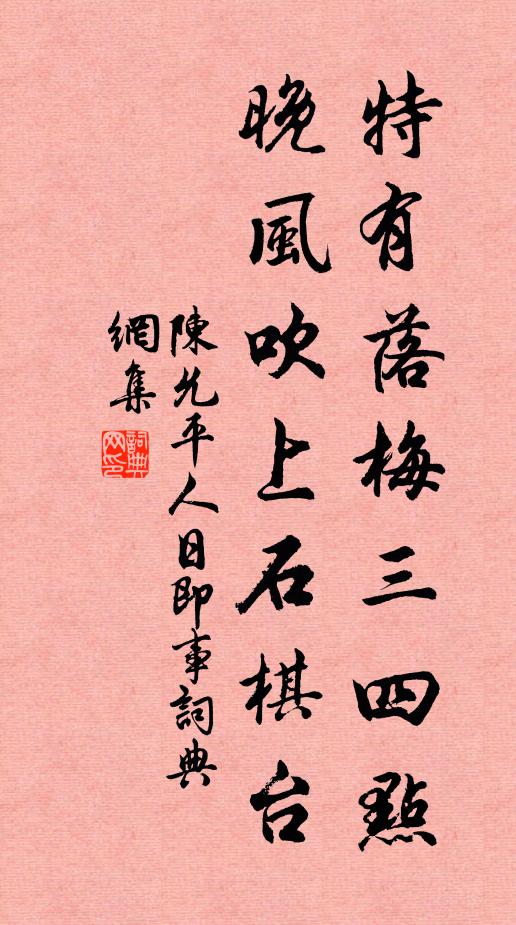 特有落梅三四點
晚風吹上石棋台
陳允平人日即事詞典
網集
詞典
网印